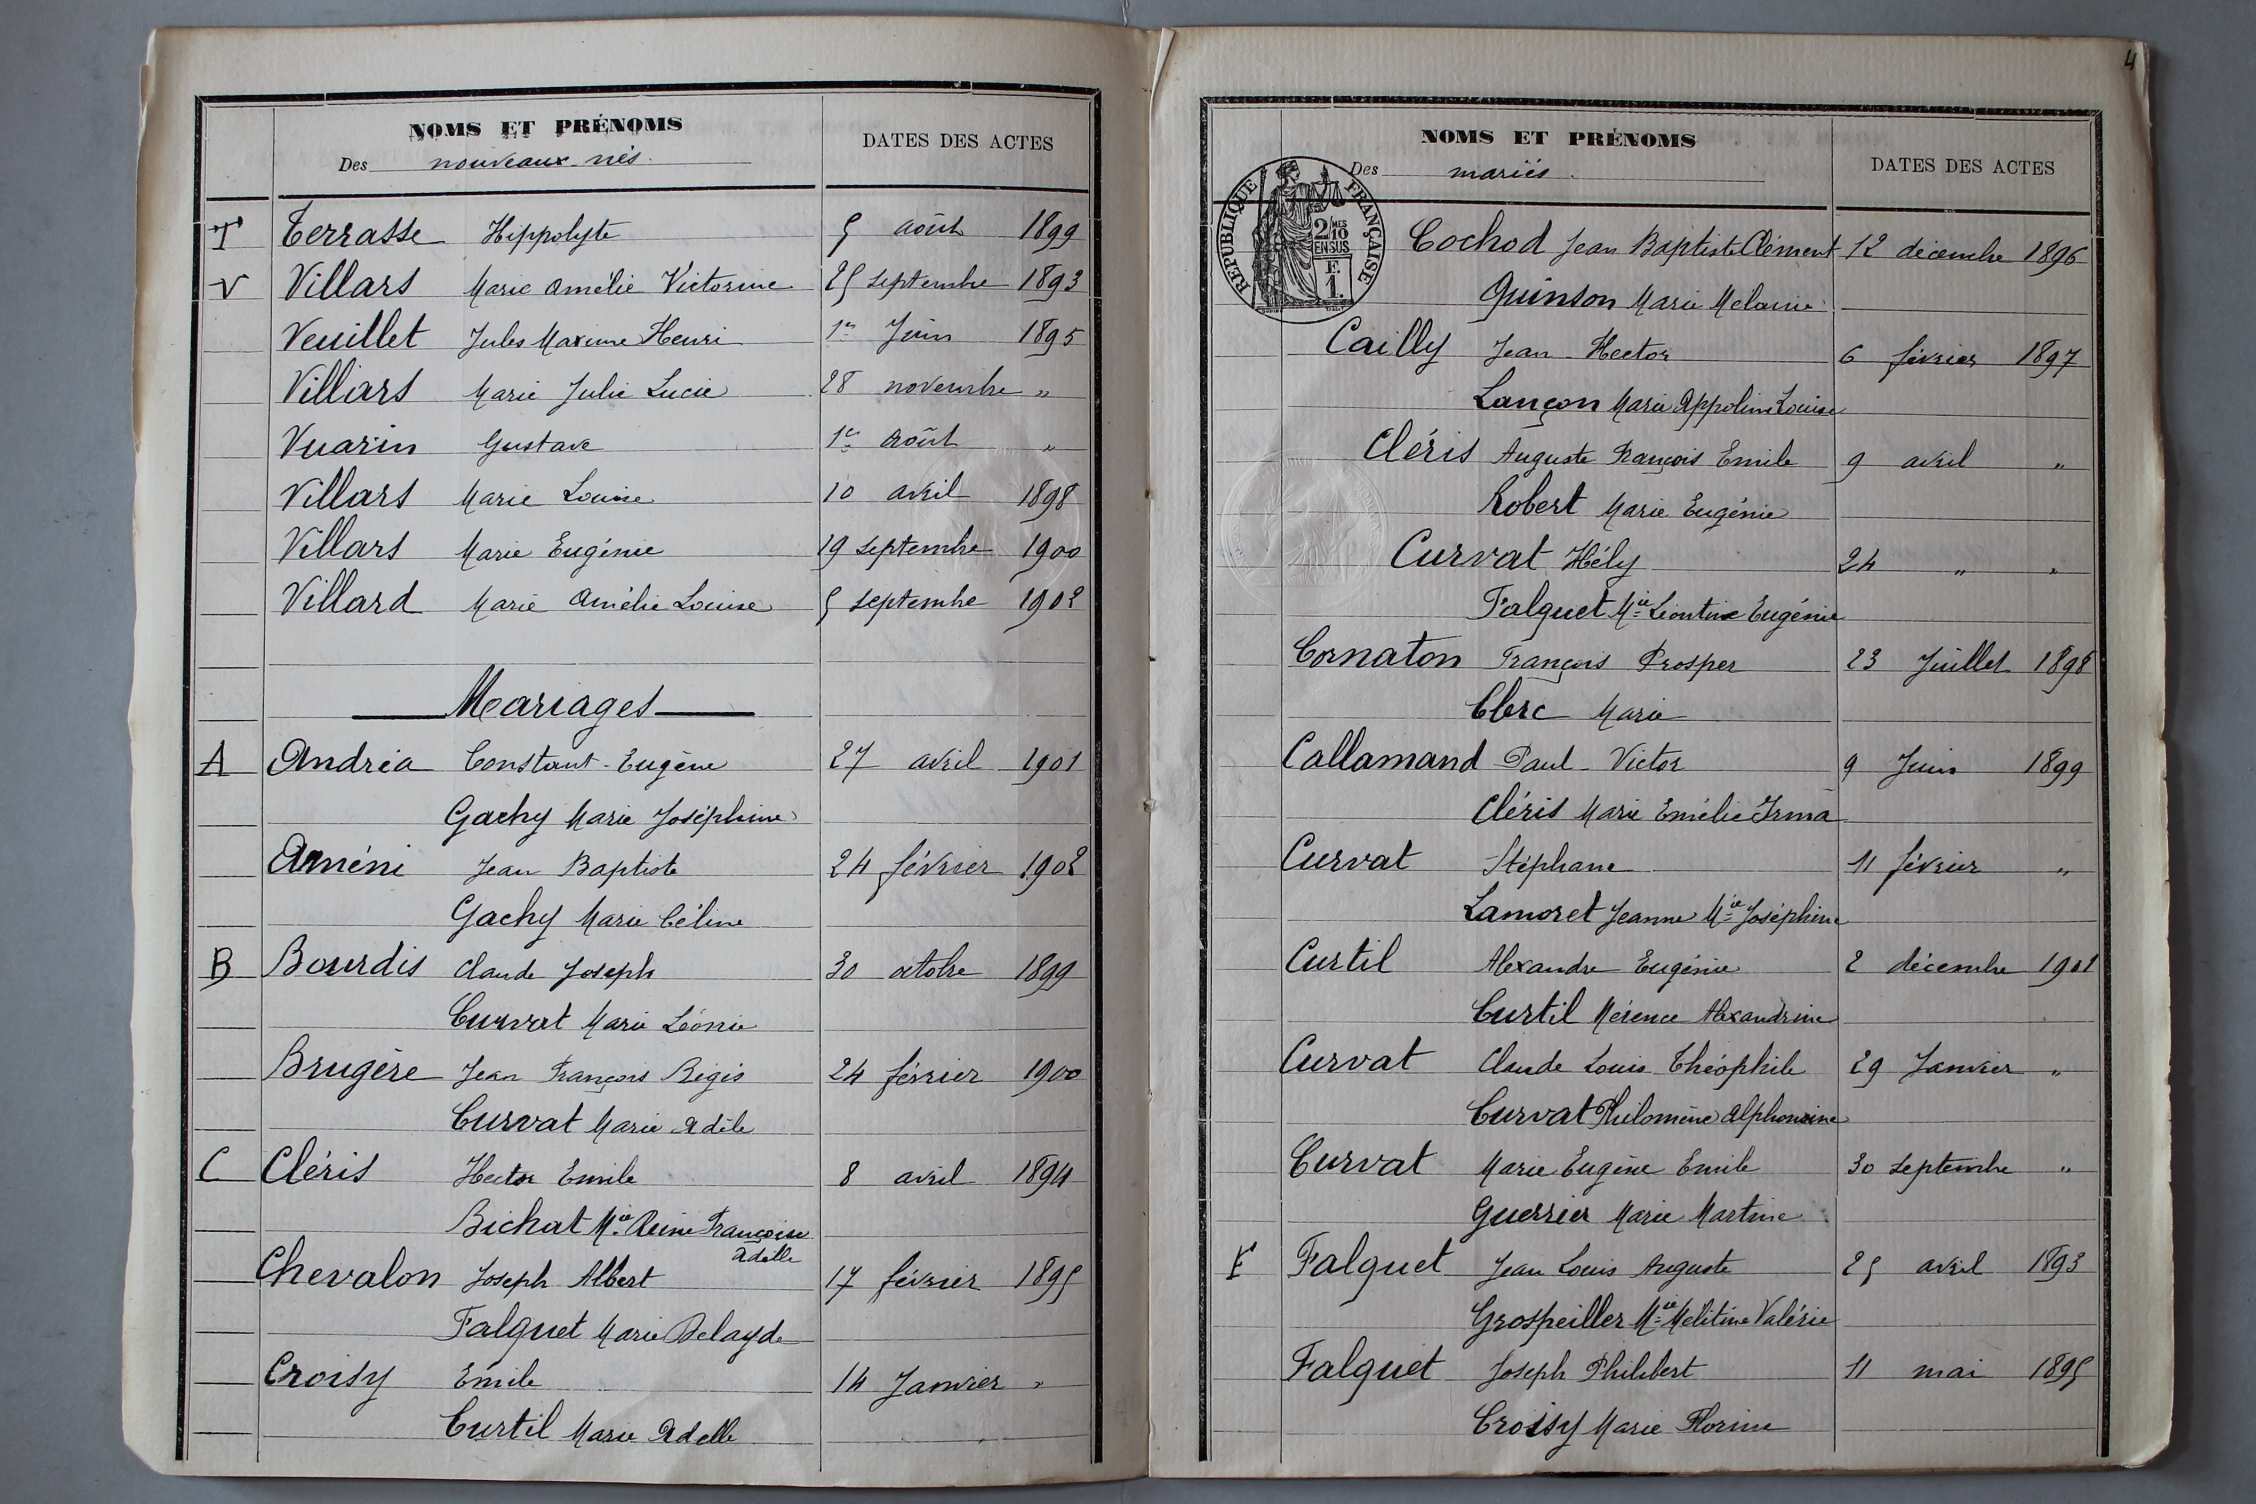 NOMS ET PRÉNOMS
Des nouveaux-nés.
DATES DES ACTES
T Terrasse Hippolyte 5 août 1899
V Villars Marie Amélie Victorine 25 septembre 1893
Veuillet Jules Maxime Henri 1er Juin 1895
Villars Marie Julie Lucie 28 novembre "
Vuarin Gustave 1er août "
Villars Marie Louise 10 avril 1898
Villars Marie Eugénie 19 septembre 1900
Villard Marie Amélie Louise 5 septembre 1902
Mariages
A Andréa Constant-Eugène 27 avril 1901
Gachy Marie Joséphine
Améni Jean Baptiste 24 février 1902
Gachy Marie Céline
B Bourdis Claude Joseph 30 octobre 1899
Curvat Marie Léonie
Brugère Jean François Régis 24 février 1900
Curvat Marie Adèle
C Cléris Hector Emile 8 avril 1894
Bichat Mie Reine Françoise
Adelle
Chevalon Joseph Albert 17 février 1895
Falquet Marie Delayde
Croisy Emile 14 Janvier "
Curtil Marie Adelle
4
NOMS ET PRÉNOMS
Des mariés.
DATES DES ACTES
RÉPUBLIQUE FRANÇAISE
2/10 MES
EN SUS
F.
1.
Cochod Jean Baptiste Clément 12 décembre 1896
Quinson Marie Melanie
Cailly Jean-Hector 6 février 1897
Lançon Marie Appoline Louise
Cléris Auguste François Emile 9 avril "
Robert Marie Eugénie
Curvat Hély 24 " "
Falquet Mie Léontine Eugénie
Cornaton François Prosper 23 Juillet 1898
Clerc Marie
Callamand Paul-Victor 9 Juin 1899
Cléris Marie Emélie Irma
Curvat Stéphane 11 février "
Lamoret Jeanne Mie Joséphine
Curtil Alexandre Eugénie 2 décembre 1901
Curtil Mérence Alexandrine
Curvat Claude Louis Théophile 29 Janvier "
Curvat Philomène Alphonsine
Curvat Marie Eugène Emile 30 septembre "
Guerrier Marie Martine
F Falquet Jean Louis Auguste 25 avril 1893
Grospeiller Mie Mélitine Valérie
Falquet Joseph Philibert 11 mai 1895
Croisy Marie Florine